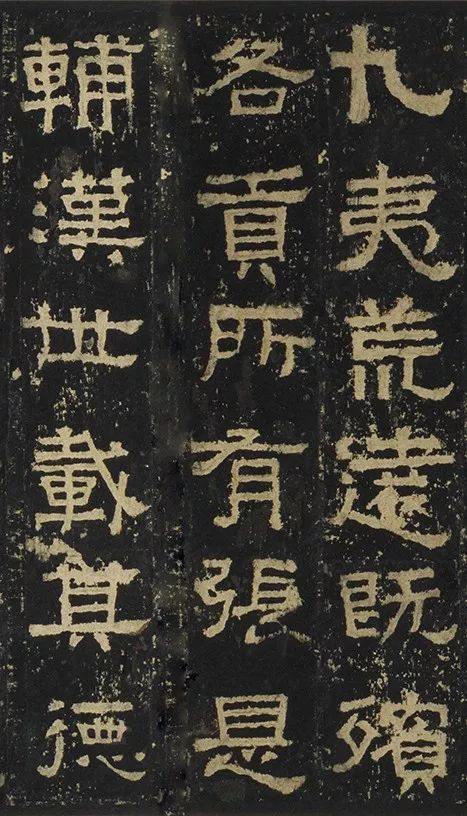 九夷荒遠既殯
各貢所有張是
輔漢世載其德